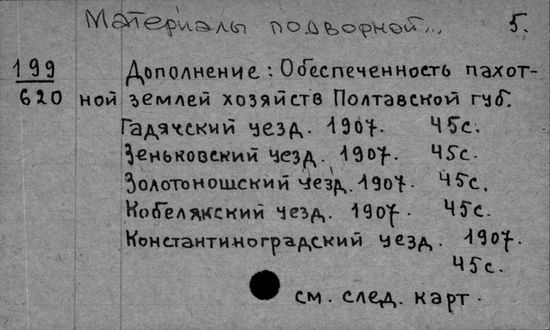 Материалы подворной... 5.
199 Дополнение: Обеспеченность пахот-
620 ной землей хозяйств Полтавской губ.
Гадячский уезд. 1907. 45с.
Зеньковский уезд. 1907. 45с.
Золотоношский уезд. 1907. 45с.
Кобелякский уезд. 1907. 45с.
Константиноградский уезд. 1907.
45с.
см. след. карт.